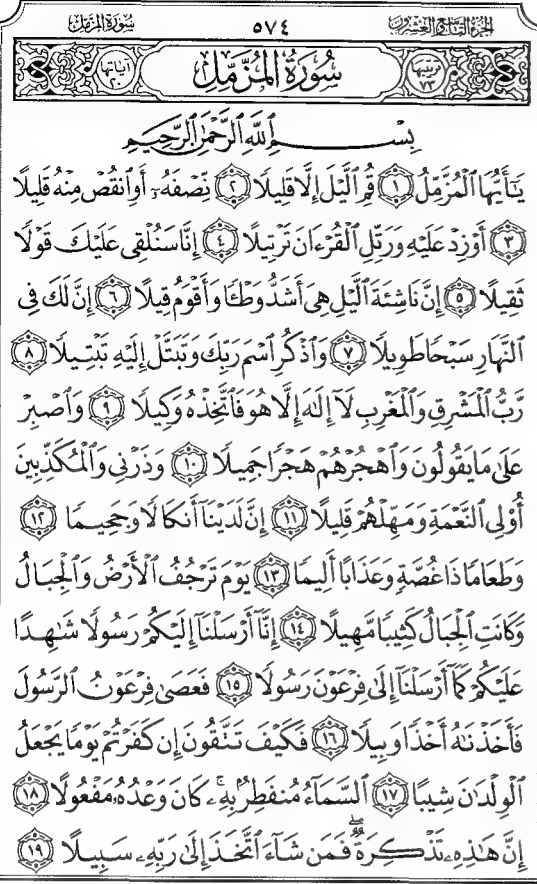 سورة المزمل ٥٧٤ الجزء التاسع والعشرون
ترتيبها ٧٣ سُورَةُ المُزَّمِّل آياتها ٢٠
بِسْمِ ٱللَّهِ ٱلرَّحْمَٰنِ ٱلرَّحِيمِ
يَٰٓأَيُّهَا ٱلْمُزَّمِّلُ ١ قُمِ ٱلَّيْلَ إِلَّا قَلِيلًا ٢ نِّصْفَهُۥٓ أَوِ ٱنقُصْ مِنْهُ قَلِيلًا
٣ أَوْ زِدْ عَلَيْهِ وَرَتِّلِ ٱلْقُرْءَانَ تَرْتِيلًا ٤ إِنَّا سَنُلْقِى عَلَيْكَ قَوْلًا
ثَقِيلًا ٥ إِنَّ نَاشِئَةَ ٱلَّيْلِ هِىَ أَشَدُّ وَطْـًٔا وَأَقْوَمُ قِيلًا ٦ إِنَّ لَكَ فِى
ٱلنَّهَارِ سَبْحًا طَوِيلًا ٧ وَٱذْكُرِ ٱسْمَ رَبِّكَ وَتَبَتَّلْ إِلَيْهِ تَبْتِيلًا ٨
رَّبُّ ٱلْمَشْرِقِ وَٱلْمَغْرِبِ لَآ إِلَٰهَ إِلَّا هُوَ فَٱتَّخِذْهُ وَكِيلًا ٩ وَٱصْبِرْ
عَلَىٰ مَا يَقُولُونَ وَٱهْجُرْهُمْ هَجْرًا جَمِيلًا ١٠ وَذَرْنِى وَٱلْمُكَذِّبِينَ
أُو۟لِى ٱلنَّعْمَةِ وَمَهِّلْهُمْ قَلِيلًا ١١ إِنَّ لَدَيْنَآ أَنكَالًا وَجَحِيمًا ١٢
وَطَعَامًا ذَا غُصَّةٍ وَعَذَابًا أَلِيمًا ١٣ يَوْمَ تَرْجُفُ ٱلْأَرْضُ وَٱلْجِبَالُ
وَكَانَتِ ٱلْجِبَالُ كَثِيبًا مَّهِيلًا ١٤ إِنَّآ أَرْسَلْنَآ إِلَيْكُمْ رَسُولًا شَٰهِدًا
عَلَيْكُمْ كَمَآ أَرْسَلْنَآ إِلَىٰ فِرْعَوْنَ رَسُولًا ١٥ فَعَصَىٰ فِرْعَوْنُ ٱلرَّسُولَ
فَأَخَذْنَٰهُ أَخْذًا وَبِيلًا ١٦ فَكَيْفَ تَتَّقُونَ إِن كَفَرْتُمْ يَوْمًا يَجْعَلُ
ٱلْوِلْدَٰنَ شِيبًا ١٧ ٱلسَّمَآءُ مُنفَطِرٌۢ بِهِۦ ۚ كَانَ وَعْدُهُۥ مَفْعُولًا ١٨
إِنَّ هَٰذِهِۦ تَذْكِرَةٌ ۖ فَمَن شَآءَ ٱتَّخَذَ إِلَىٰ رَبِّهِۦ سَبِيلًا ١٩